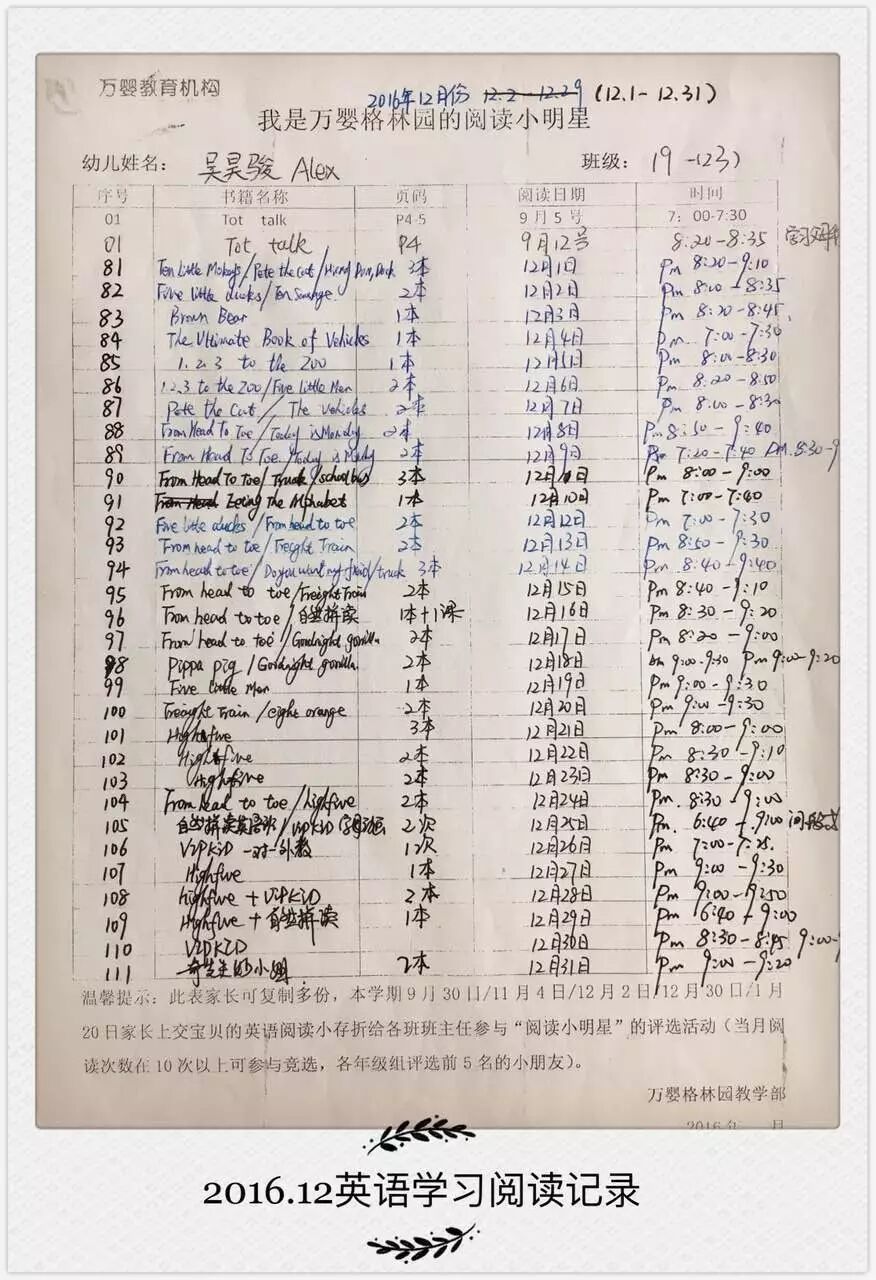 万婴教育机构
2016年12月份 12.2-12.29 (12.1-12.31)
我是万婴格林园的阅读小明星
幼儿姓名: 吴昊骏 Alex 班级: 19-(23)
序号 书籍名称 页码 阅读日期 时间
01 Tot talk P4-5 9月5号 7:00-7:30
01 Tot talk P4 9月12号 8:20-8:35 学习
81 Ten Little Mokeys/Pete the Cat/ 3本 12月1日 Pm 8:20-9:10
82 Five little ducks/Ten 2本 12月2日 Pm 8:00-8:35
83 Brown Bear 1本 12月3日 Pm 8:20-8:45
84 The Ultimate Book of Vehicles 1本 12月4日 Pm 7:00-7:30
85 1.2.3 to the ZOO 1本 12月5日 Pm 8:00-8:30
86 1.2.3 to the ZOO/Five Little Men 2本 12月6日 Pm 8:20-8:50
87 Pete the Cat/The Vehicles 2本 12月7日 Pm 8:00-8:30
88 From Head To Toe/Today is Monday 2本 12月8日 Pm 8:50-9:40
89 From Head To Toe/Today is Monday 2本 12月9日 Pm 7:20-7:40 Pm 8:30-9
90 From Head To Toe/Truck/school bus 3本 12月10日 Pm 8:00-9:00
91 From Head Zoeing The Alphabet 1本 12月10日 Pm 7:00-7:40
92 Five little ducks/From head to toe 2本 12月12日 Pm 7:00-7:30
93 From head to toe/Freight Train 2本 12月13日 Pm 8:50-9:30
94 From head to toe/Do you want my friend/truck 3本 12月14日 Pm 8:40-9:40
95 From head to toe/Freight Train 2本 12月15日 Pm 8:40-9:10
96 From head to toe/自然拼读 1本+1课 12月16日 Pm 8:30-9:20
97 From head to toe/Goodnight gorilla 2本 12月17日 Pm 8:20-9:00
98 Pippa pig/Goodnight gorilla 2本 12月18日 Am 9:00-9:30 Pm 9:00-9:20
99 Five little Men 1本 12月19日 Pm 9:00-9:30
100 Freight Train/eight orange 2本 12月20日 Pm 9:00-9:30
101 Highfive 3本 12月21日 Pm 8:00-9:00
102 Highfive 2本 12月22日 Pm 8:30-9:10
103 Highfive 2本 12月23日 Pm 8:30-9:00
104 From head to toe/highfive 2本 12月24日 Pm 8:30-9:00
105 自然拼读英语班/VIPKID 2次 12月25日 Pm 6:40-9:00
106 VIPKID 一对一外教 1次 12月26日 Pm 7:00-7:25
107 Highfive 1本 12月27日 Pm 9:00-9:30
108 highfive + VIPKID 2本 12月28日 Pm 9:00-9:50
109 Highfive + 自然拼读 1本 12月29日 Pm 6:40-9:00
110 VIPKID 12月30日 Pm 8:30-8:45 9:00-9
111 奇先生妙小姐 2本 12月31日 Pm 9:00-9:20
温馨提示:此表家长可复制多份,本学期9月30日/11月4日/12月2日/12月30日/1月
20日家长上交宝贝的英语阅读小存折给各班班主任参与“阅读小明星”的评选活动(当月阅
读次数在10次以上可参与竞选,各年级组评选前5名的小朋友)。
万婴格林园教学部
2016年 月
2016.12英语学习阅读记录